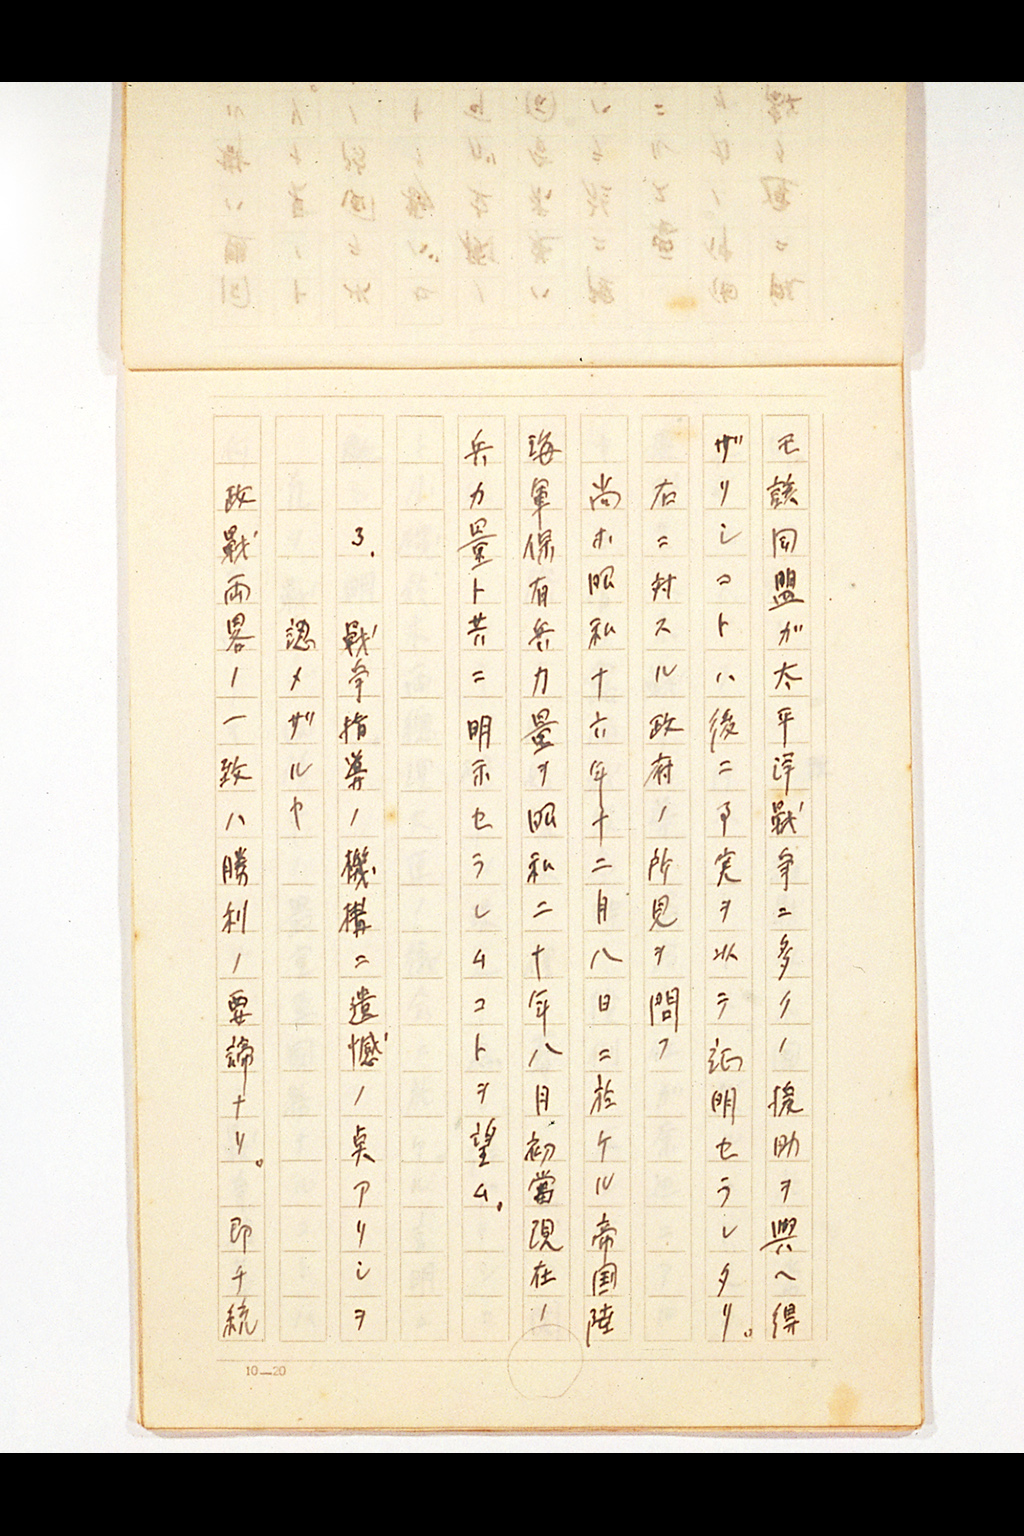 モ該同盟ガ太平洋戰争ニ多クノ援助ヲ與ヘ得
ザリシコトハ後ニ事実ヲ以テ証明セラレタリ。
右ニ対スル政府ノ所見ヲ問フ
尚ホ昭和十六年十二月八日ニ於ケル帝国陸
海軍保有兵力量ヲ昭和二十年八月初當現在ノ
兵力量ト共ニ明示セラレムコトヲ望ム。
3. 戰争指導ノ機構ニ遺憾ノ点アリシヲ
認メザルヤ
政戰両畧ノ一致ハ勝利ノ要諦ナリ。即チ統
10—20